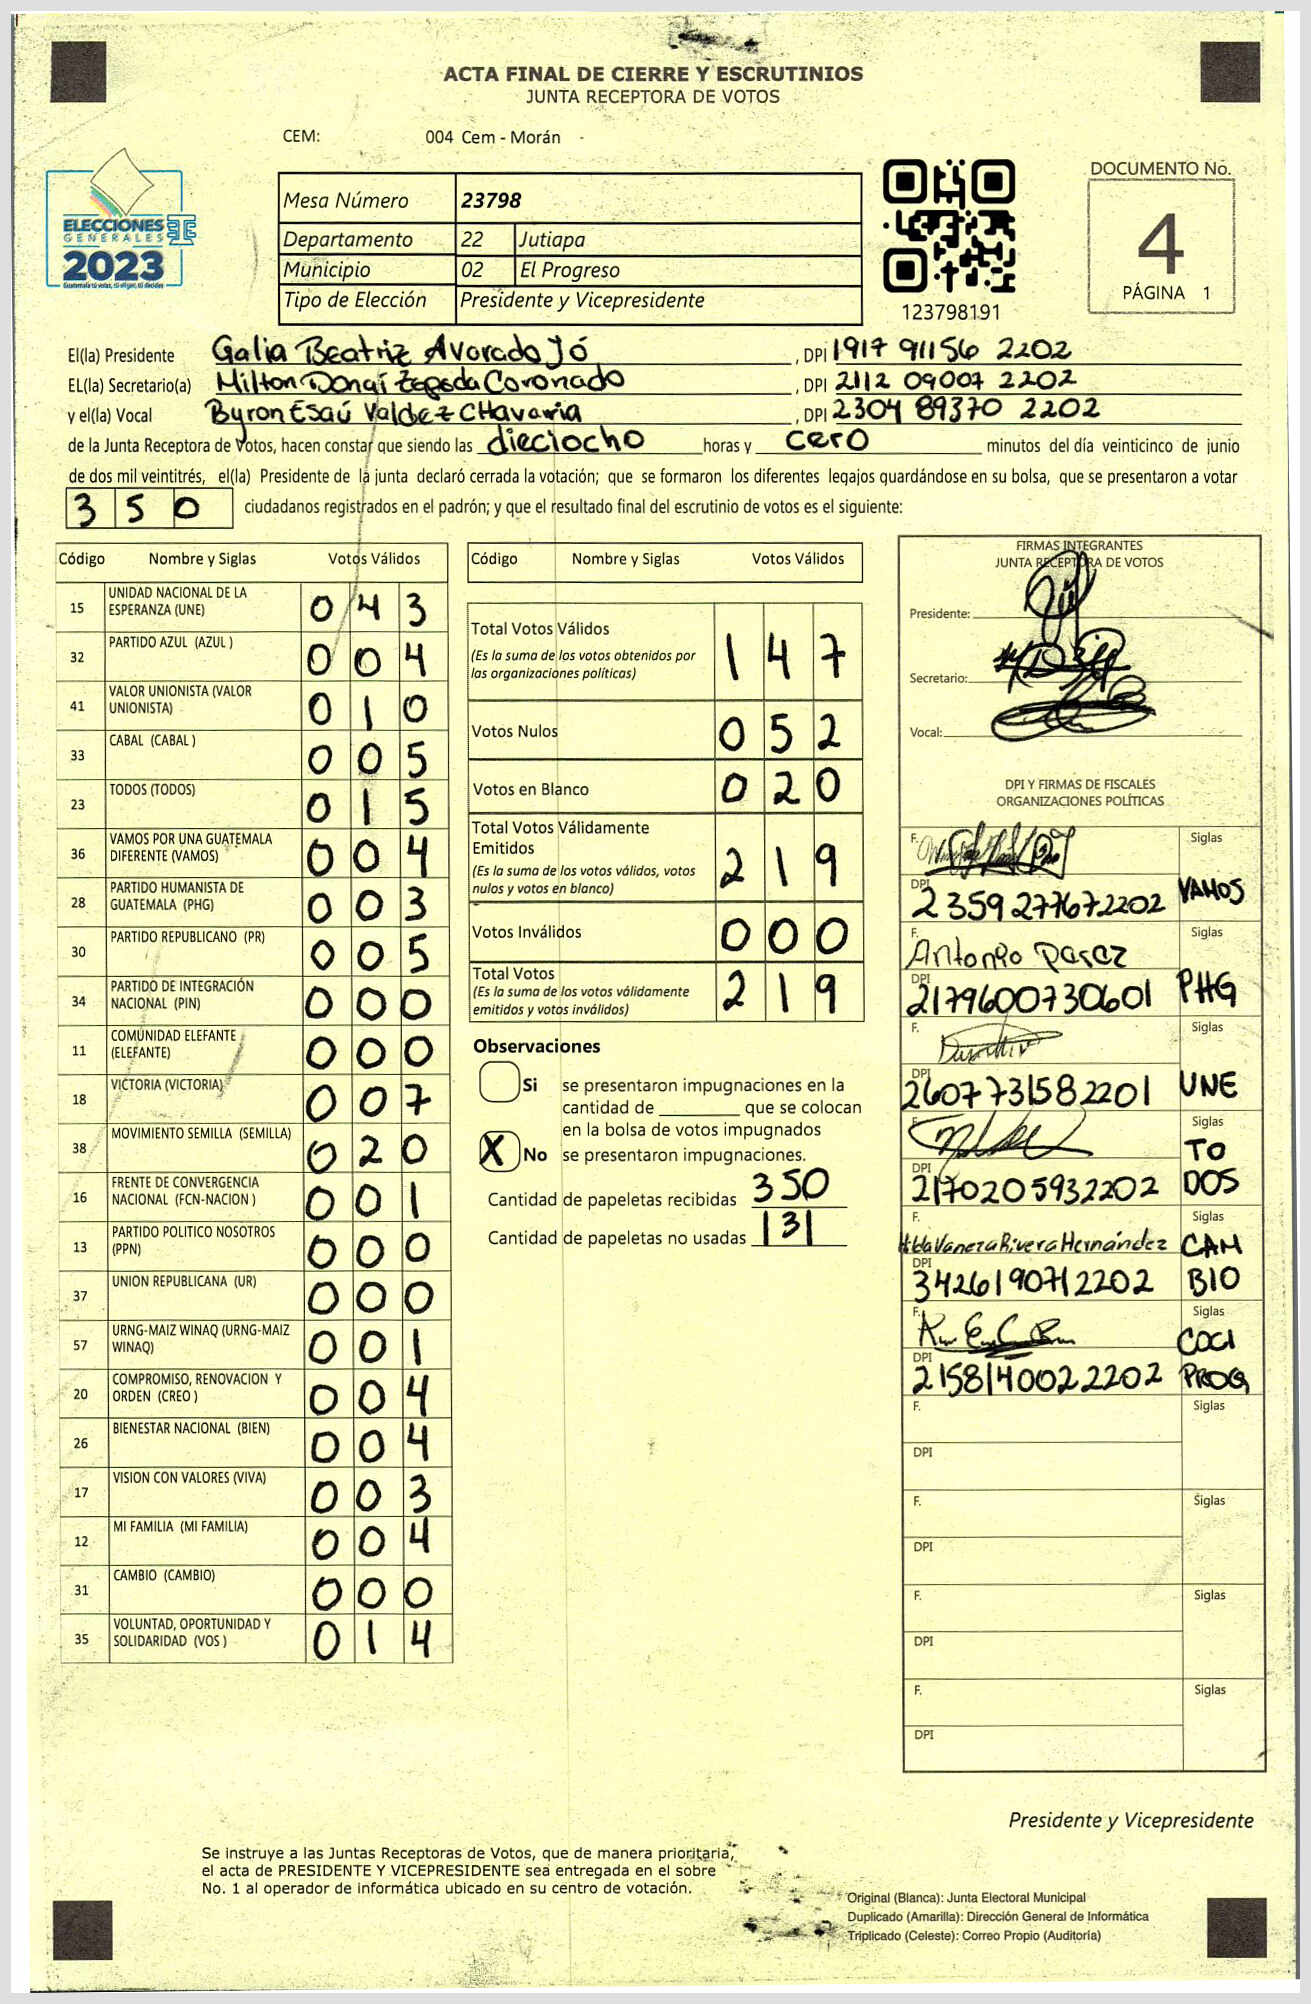 ACTA FINAL DE CIERRE Y ESCRUTINIOS
JUNTA RECEPTORA DE VOTOS
CEM: 004 Cem - Morán
ELECCIONES
GENERALES
2023
Guatemala tú votas, tú eliges, tú decides
Mesa Número 23798
Departamento 22 Jutiapa
Municipio 02 El Progreso
Tipo de Elección Presidente y Vicepresidente
123798191
DOCUMENTO No.
4
PÁGINA 1
El(la) Presidente Galia Beatriz Avorado Jó , DPI 1917 91156 2202
EL(la) Secretario(a) Milton Donaí Zepeda Coronado , DPI 2112 09007 2202
y el(la) Vocal Byron Esaú Valdez CHavarria , DPI 2304 89370 2202
de la Junta Receptora de Votos, hacen constar que siendo las dieciocho horas y cero minutos del día veinticinco de junio
de dos mil veintitrés, el(la) Presidente de la junta declaró cerrada la votación; que se formaron los diferentes legajos guardándose en su bolsa, que se presentaron a votar
350 ciudadanos registrados en el padrón; y que el resultado final del escrutinio de votos es el siguiente:
Código Nombre y Siglas Votos Válidos
15 UNIDAD NACIONAL DE LA ESPERANZA (UNE) 043
32 PARTIDO AZUL (AZUL ) 004
41 VALOR UNIONISTA (VALOR UNIONISTA) 010
33 CABAL (CABAL ) 005
23 TODOS (TODOS) 015
36 VAMOS POR UNA GUATEMALA DIFERENTE (VAMOS) 004
28 PARTIDO HUMANISTA DE GUATEMALA (PHG) 003
30 PARTIDO REPUBLICANO (PR) 005
34 PARTIDO DE INTEGRACIÓN NACIONAL (PIN) 000
11 COMUNIDAD ELEFANTE (ELEFANTE) 000
18 VICTORIA (VICTORIA) 007
38 MOVIMIENTO SEMILLA (SEMILLA) 020
16 FRENTE DE CONVERGENCIA NACIONAL (FCN-NACION ) 001
13 PARTIDO POLITICO NOSOTROS (PPN) 000
37 UNION REPUBLICANA (UR) 000
57 URNG-MAIZ WINAQ (URNG-MAIZ WINAQ) 001
20 COMPROMISO, RENOVACION Y ORDEN (CREO ) 004
26 BIENESTAR NACIONAL (BIEN) 004
17 VISION CON VALORES (VIVA) 003
12 MI FAMILIA (MI FAMILIA) 004
31 CAMBIO (CAMBIO) 000
35 VOLUNTAD, OPORTUNIDAD Y SOLIDARIDAD (VOS ) 014
Código Nombre y Siglas Votos Válidos
Total Votos Válidos 147
(Es la suma de los votos obtenidos por
las organizaciones políticas)
Votos Nulos 052
Votos en Blanco 020
Total Votos Válidamente
Emitidos 219
(Es la suma de los votos válidos, votos
nulos y votos en blanco)
Votos Inválidos 000
Total Votos 219
(Es la suma de los votos válidamente
emitidos y votos inválidos)
Observaciones
Si se presentaron impugnaciones en la
cantidad de ________ que se colocan
en la bolsa de votos impugnados
X No se presentaron impugnaciones.
Cantidad de papeletas recibidas 350
Cantidad de papeletas no usadas 131
FIRMAS INTEGRANTES
JUNTA RECEPTORA DE VOTOS
Presidente:
Secretario:
Vocal:
DPI Y FIRMAS DE FISCALES
ORGANIZACIONES POLÍTICAS
F. Siglas
DPI 2359277672202 VAMOS
F. Antonio Perez Siglas
DPI 2179600730601 PHG
F. Siglas
DPI 2607731582201 UNE
F. Siglas
DPI 2170205932202 TODOS
F. Hilda Vaneza Rivera Hernández Siglas
DPI 3426190712202 CAMBIO
F. Siglas
DPI 2158140022202 COCI PROG
F. Siglas
DPI
F. Siglas
DPI
F. Siglas
DPI
F. Siglas
DPI
Presidente y Vicepresidente
Se instruye a las Juntas Receptoras de Votos, que de manera prioritaria,
el acta de PRESIDENTE Y VICEPRESIDENTE sea entregada en el sobre
No. 1 al operador de informática ubicado en su centro de votación.
Original (Blanca): Junta Electoral Municipal
Duplicado (Amarilla): Dirección General de Informática
Triplicado (Celeste): Correo Propio (Auditoría)